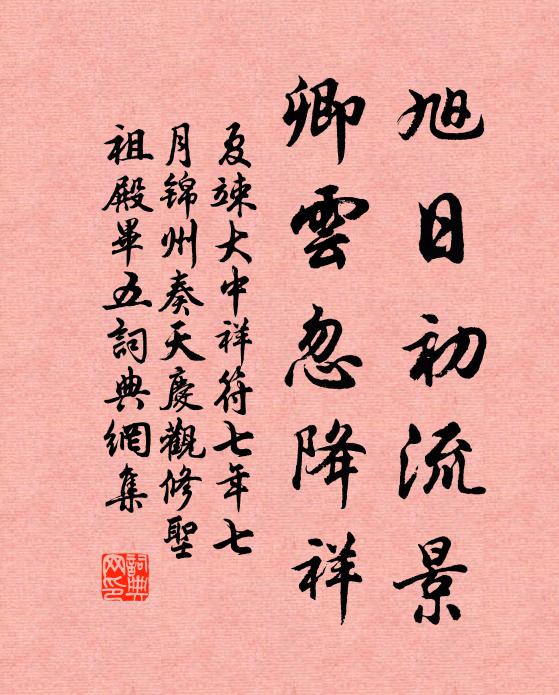 旭日初流景
卿雲忽降祥
夏竦大中祥符七年七
月錦州奏天慶觀修聖
祖殿畢五詞典網集
詞典网印